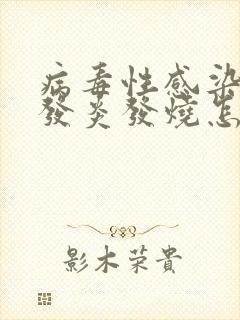 病毒性感染
發炎發燒怎
影木荣貴